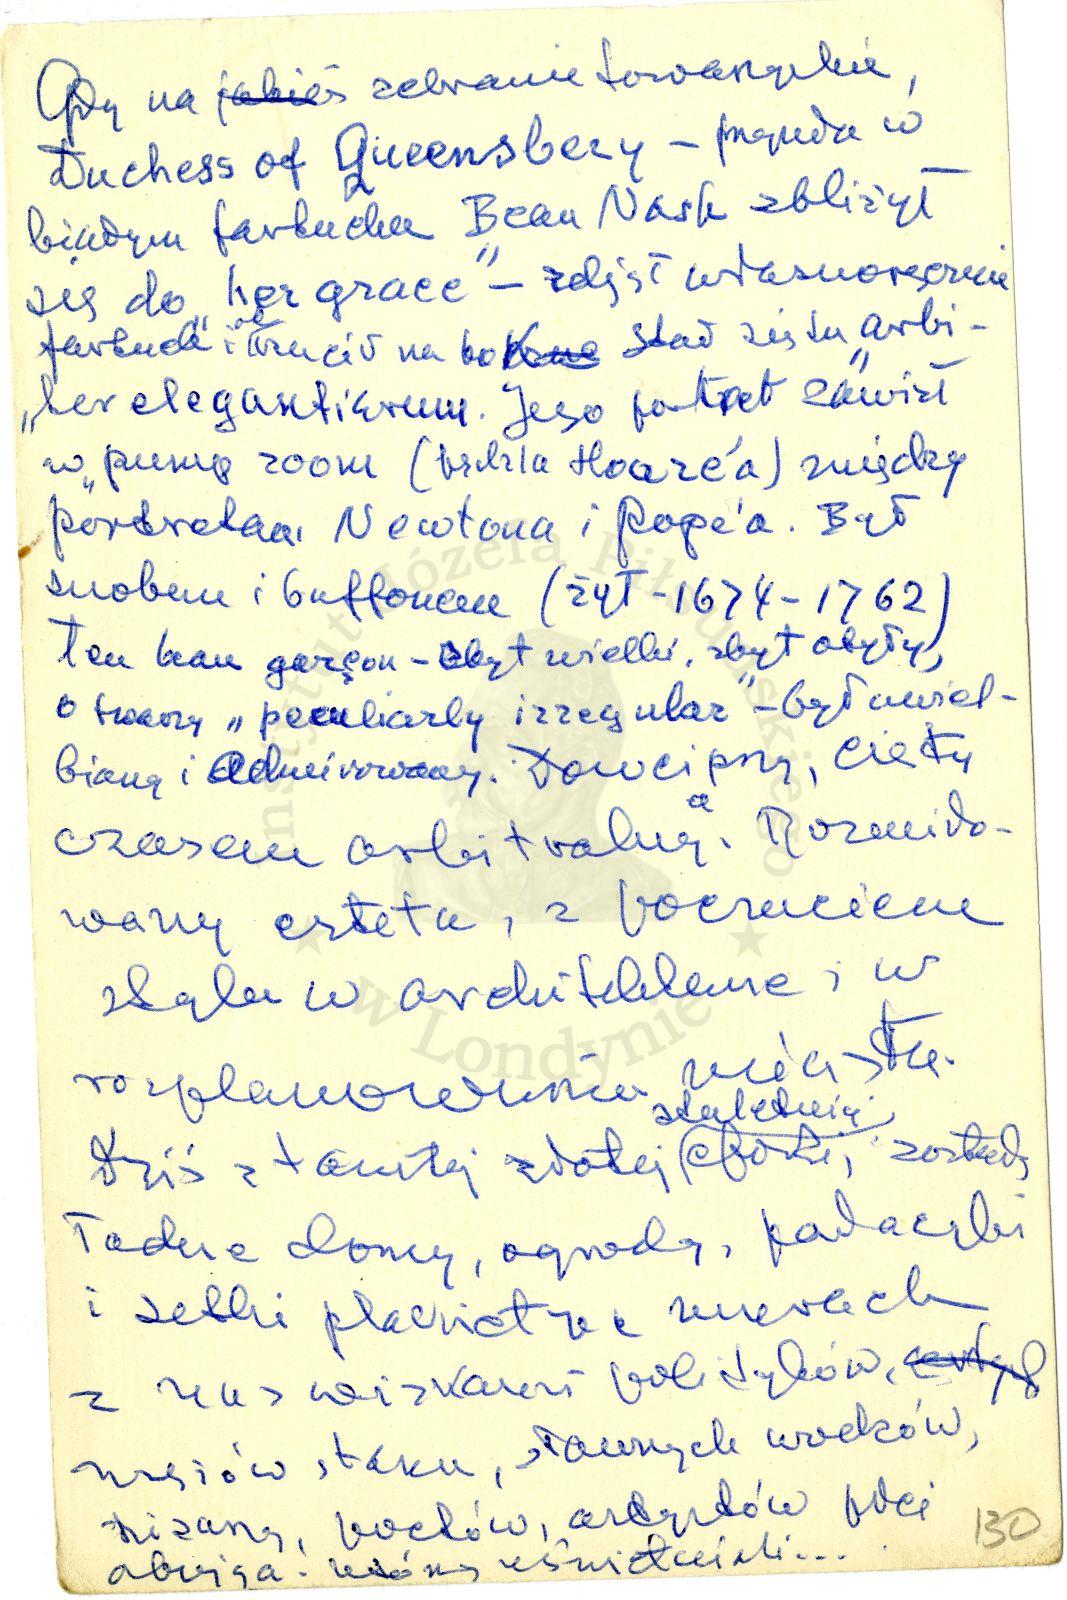 Gdy na jakieś zebranie towarzyskie,
Duchess of Queensbery – przyszła w
białym fartuchu Beau Nash zbliżył
się do „her grace” – zdjął własnoręcznie
fartuch i rzucił na bok Stał się tu arbi-
„ter elegantiarum. Jego portret zawisł
w „pump room (pędzla Hoare'a) między
portretami Newtona i Pope'a. Był
snobem i buffonem (żył – 1674 – 1762)
Ten beau garçon – zbyt wielki, zbyt otyły,
o twarzy „peculiarly irregular” – był uwiel-
biany i admirowany. Dowcipny, cięty
czasem arbitralny. Rozmiło-
wany esteta, z poczuciem
stylu w architekturze i w
rozplanowaniu miasta.
stuletniej
Dziś z tamtej złotej epoki, zostały
ładne domy, ogrody, pałacyki
i setki plakiet na murach
z nazwiskami polityków,
mężów stanu, sławnych wodzów,
pisarzy, poetów, artystów płci
obojga: którzy uświetniali...
130
Instytut Józefa Piłsudskiego
w Londynie